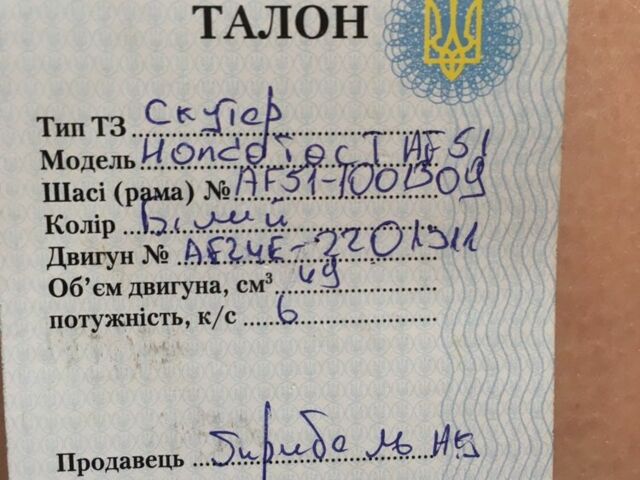 ТАЛОН
Тип ТЗ Скутер
Модель Honda Тост AF51
Шасі (рама) № AF51-1001309
Колір Білий
Двигун № AF24E-2201311
Об’єм двигуна, см³ 49
потужність, к/с 6
Продавець